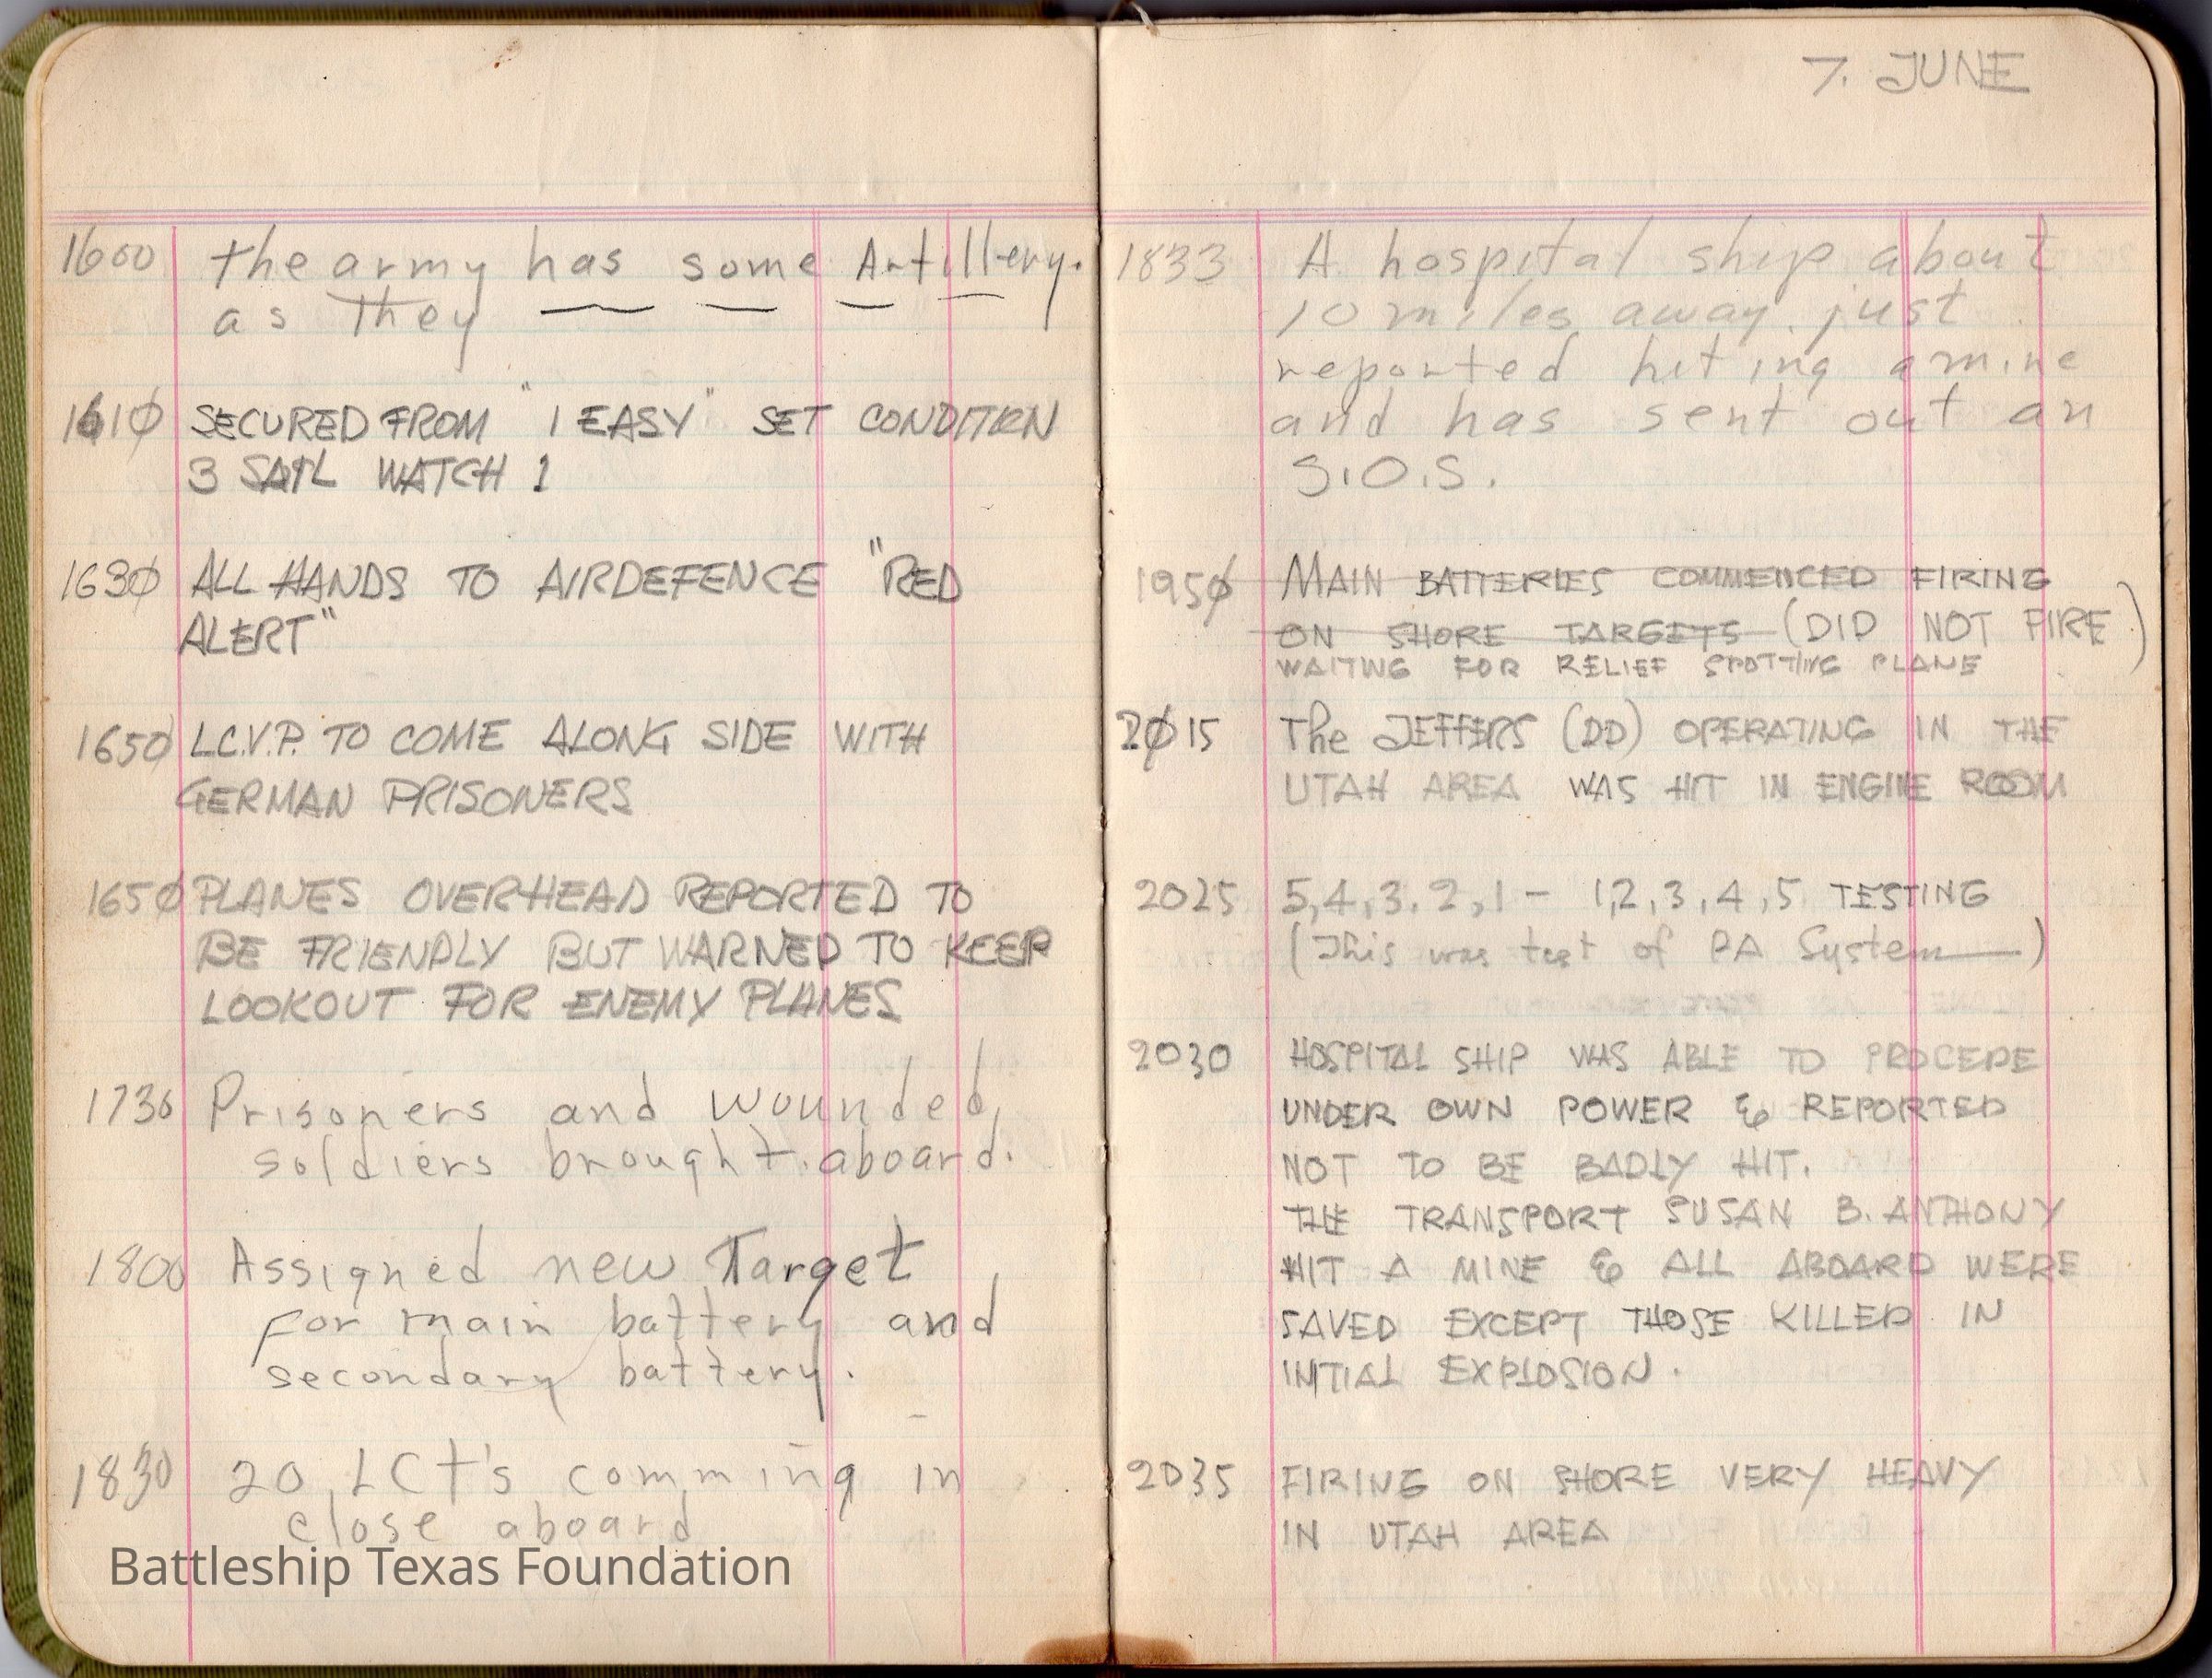 1600 the army has some Artillery.
as They — — — —
1610 SECURED FROM "1 EASY" SET CONDITION
3 SAIL WATCH 1
1630 ALL HANDS TO AIRDEFENCE "RED
ALERT"
1650 L.C.V.P. TO COME ALONG SIDE WITH
GERMAN PRISONERS
1650 PLANES OVERHEAD REPORTED TO
BE FRIENDLY BUT WARNED TO KEEP
LOOKOUT FOR ENEMY PLANES
1730 Prisoners and wounded
soldiers brought aboard.
1800 Assigned new Target
for main battery and
secondary battery.
1830 20 LCT's comming in
close aboard
Battleship Texas Foundation
7. JUNE
1833 A hospital ship about
10 miles away just
reported hiting a mine
and has sent out an
S.O.S.
1950 MAIN BATTERIES COMMENCED FIRING
ON SHORE TARGETS (DID NOT FIRE)
WAITING FOR RELIEF SPOTTING PLANE
2015 The JEFFERS (DD) OPERATING IN THE
UTAH AREA WAS HIT IN ENGINE ROOM
2025 5,4,3,2,1 - 1,2,3,4,5 TESTING
(This was test of PA System—)
2030 HOSPITAL SHIP WAS ABLE TO PROCEDE
UNDER OWN POWER & REPORTED
NOT TO BE BADLY HIT.
THE TRANSPORT SUSAN B. ANTHONY
HIT A MINE & ALL ABOARD WERE
SAVED EXCEPT THOSE KILLED IN
INITIAL EXPLOSION.
2035 FIRING ON SHORE VERY HEAVY
IN UTAH AREA